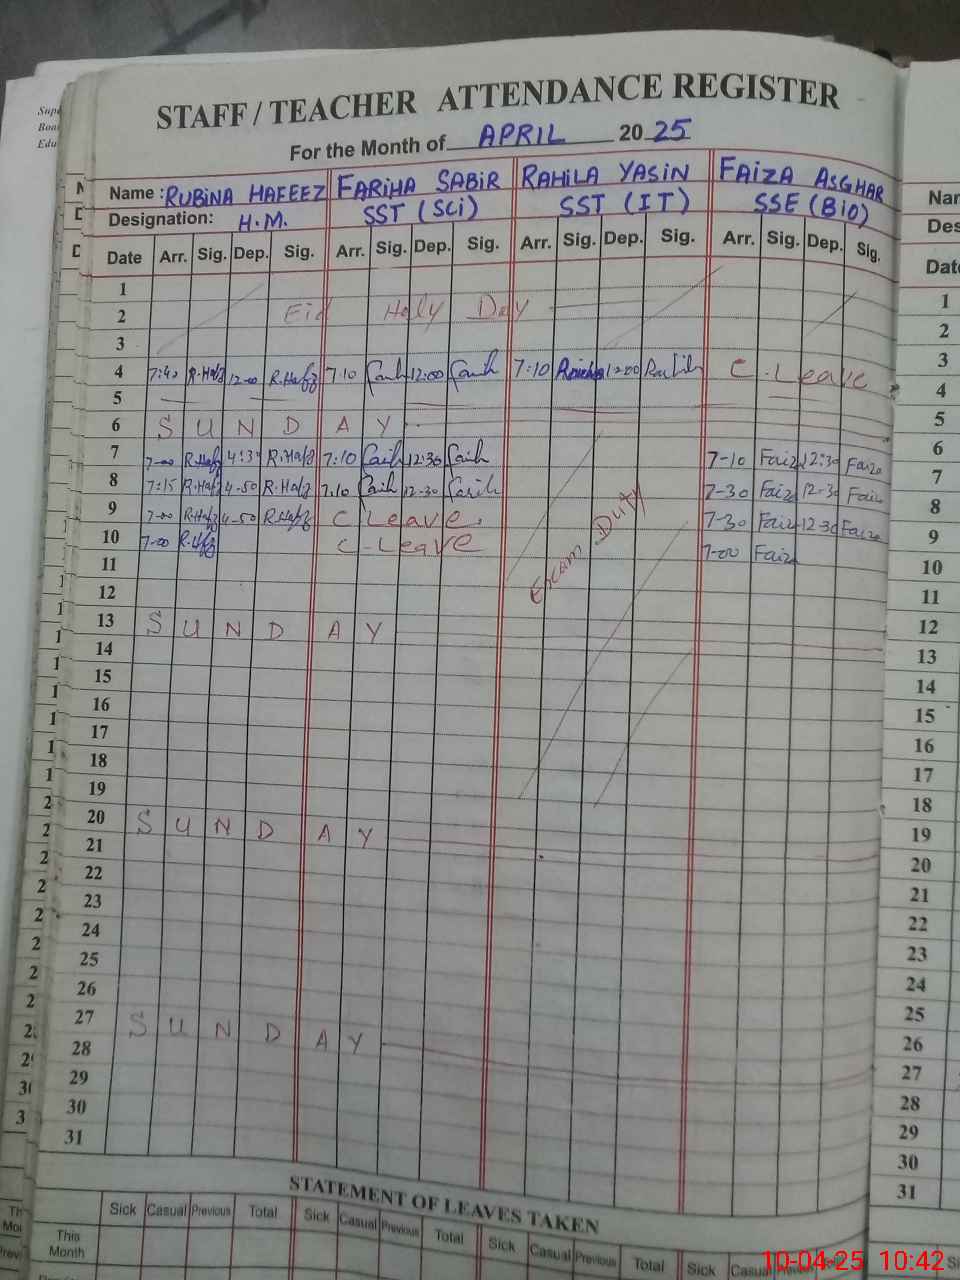 Supe
Boar
Edu
STAFF / TEACHER ATTENDANCE REGISTER
For the Month of APRIL 2025
Name : RUBINA HAFEEZ FARIHA SABIR RAHILA YASIN FAIZA ASGHAR
Designation: H.M. SST (SCi) SST (IT) SSE (BIO)
Date Arr. Sig. Dep. Sig. Arr. Sig. Dep. Sig. Arr. Sig. Dep. Sig. Arr. Sig. Dep. Sig.
1
2 Eid Holy Day
3
4 7:40 R.Hafz 12-00 R.Hafz 7:10 12:00 7:10 12:00 C. Leave
5
6 S U N D A Y
7 7-00 R.Hafz 4:3 R.Hafz 7:10 12:30 7-10 Faiza 12:30 Faiza
8 7:15 R.Hafz 4-50 R.Hafz 7.10 12-30 7-30 Faiza 12-30 Faiza
9 7-00 R.Hafz 4-50 R.Hafz C Leave. 7-30 Faiza 12 30 Faiza
10 7-00 R.Hafz C-Leave 7-00 Faiza
Exam Duty
11
12
13 S U N D A Y
14
15
16
17
18
19
20 S U N D A Y
21
22
23
24
25
26
27 S U N D A Y
28
29
30
31
STATEMENT OF LEAVES TAKEN
Sick Casual Previous Total Sick Casual Previous Total Sick Casual Previous Total Sick Casual
This Month
Nar
Des
Date
1
2
3
4
5
6
7
8
9
10
11
12
13
14
15
16
17
18
19
20
21
22
23
24
25
26
27
28
29
30
31
10-04-25 10:42